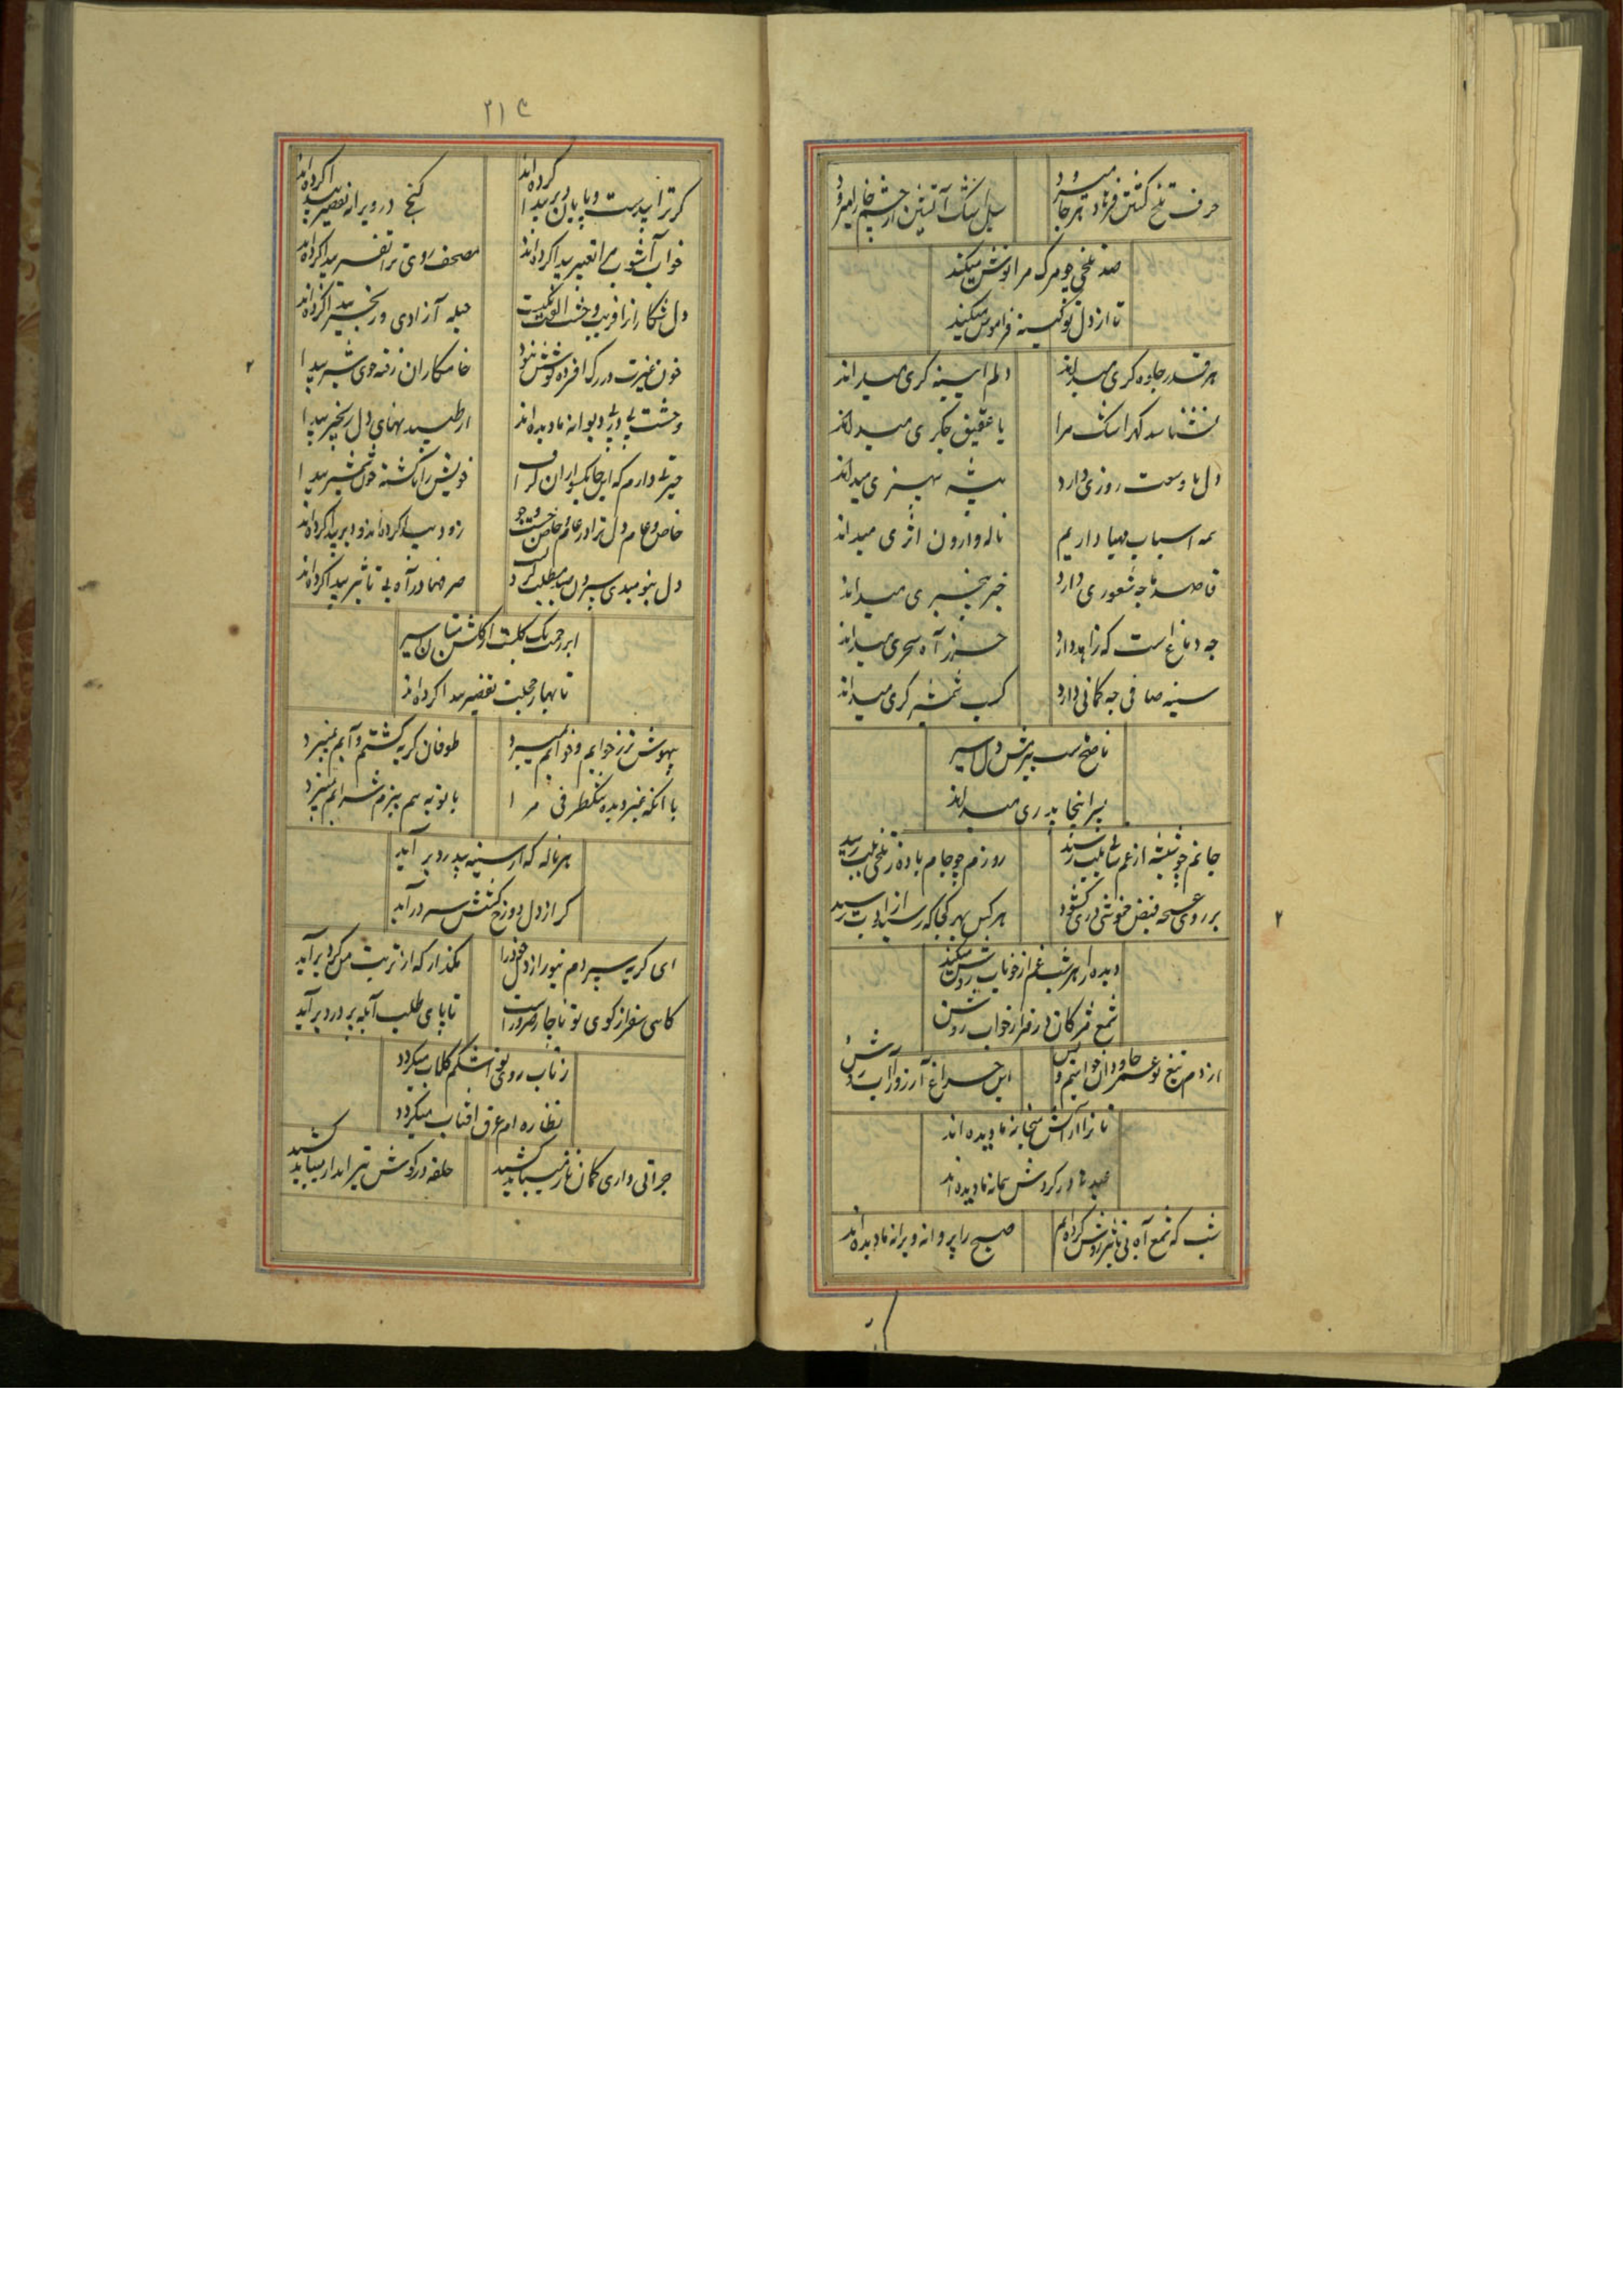 حرف تلخ کفتن فرهاد هر جا میرود
سیل اشک آتشین از چشم خارا میرود
صد تلخی چو مرک مرا نوش میکند
تا از دل تو کینه فراموش میکند
هر قدر جلوه کری میداند
دلم آیینه کری میداند
نشناسد کهر اشک مرا
یا عقیق جکری میداند
دل با وسعت روزی دارد
بیشه هنری میداند
همه اسباب مهیا داریم
ناله وارون اثری میداند
قاصد ما چه شعوری دارد
خبر بیخبری میداند
چه دماغ است که زاهد دارد
حرز آه سحری میداند
سینه صافی چه کمانی دارد
کسب شمشیر کری میداند
ناصح دل اسیر
پیر اینجا پدری میداند
جانم چو شیشه از غم بلب رسید
روزم چو جام باده ز تلخی بشب رسید
بر روی فیض خموشی دری کشود
هر کس بهر کجا که رسید از ادب رسید
دیده را هر شب غم از خوناب روشن میکند
شمع مژکان در نظر از خواب روشن
از دم تیغ تو عمر جاودان خواهیم و بس
این چراغ آرزو را آب روشن
ناز را آرایش میخانه ما دیده اند
صد در کردش پیمانه ما دیده اند
شب که شمع آه بی تاثیر روشن کرده ایم
صبح را پروانه ویرانه ما دیده اند
۲
۲۱۴
کنج در ویرانه تعمیر پیدا کرده اند
خواب آشوب مرا تعبیر پیدا کرده اند
مصحف روی ترا تفسیر پیدا کرده اند
دل شکاران را فریب وحشت الفت
حیله آزادی و زنجیر پیدا کرده اند
خون غیرت در رک افسرده جوش
خامکاران رفته جوی شیر پیدا
وحشت پی در پی دیوانه ما دیده اند
از طپیدنهای دل زنجیر پیدا
حیرتی دارم که این چابکسواران
خویش را ناکشته خون شمشیر پیدا
خاص و عام دل ترا در عالم خاص
زود پیدا کرده اند و دیر پیدا کرده اند
دل بنومیدی سپردن مطلب
صرفها در آه بی تاثیر پیدا کرده اند
ابر رحمت یک کلبت از کلشن اسیر
تا بهار خجلت تقصیر پیدا کرده اند
۲
بیهوش تر ز خوابم و خوابم نمیبرد
طوفان کریه کشتم و آبم نمیبرد
با آنکه غیر دیده تنکظرفی مرا
با توبه هم ببزم شرابم نمیبرد
هر ناله که از سینه پر درد بر آید
کر از دل دوزخ کشش سرد بر آید
ای کریه سپردم بتو راز دل خود را
مکذار که از تربت من کرد بر آید
کاهی سفر از کوی تو ناچار ضرور است
تا پای طلب آبله پرورد بر آید
ز تاب روی تو اشکم کلاب میکردد
نظاره ام عرق آفتاب میکردد
جراتی داری کمان ناز میباید کشید
حلقه در کوش تیر انداز میباید کشید